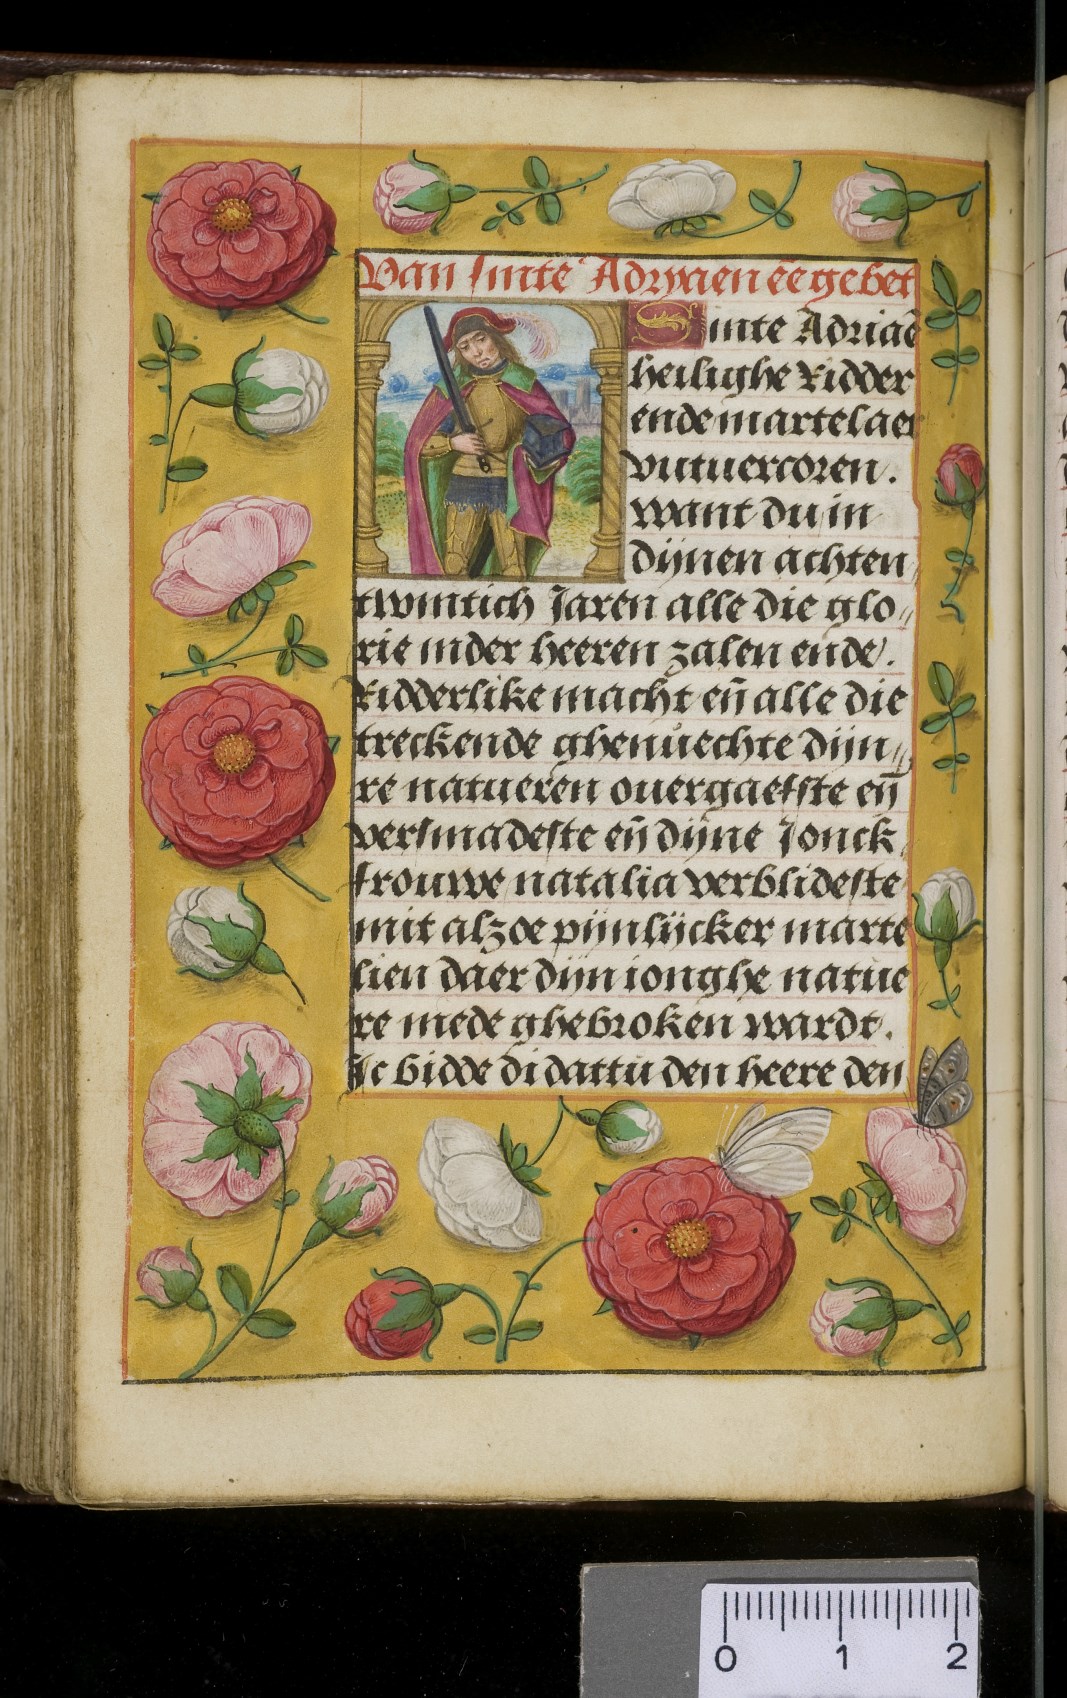 Van sinte Adryaen eē gebet
Sinte Adriaē
heilighe Ridder
ende martelaer
vutuercoren.
Want du in
dijnen achten
twintich Jaren alle die glo〃
rie inder heeren zalen ende.
Ridderlike macht eñ alle die
treckende ghenuechte dijn〃
re natueren ouergaefste eñ
versmadeste eñ dijne Jonck
frouwe natalia verblideste
mit alzoe pijnlijcker marte
lien daer dijn ionghe natue
re mede ghebroken wardt.
Ic bidde di dattu den heere den
0 1 2